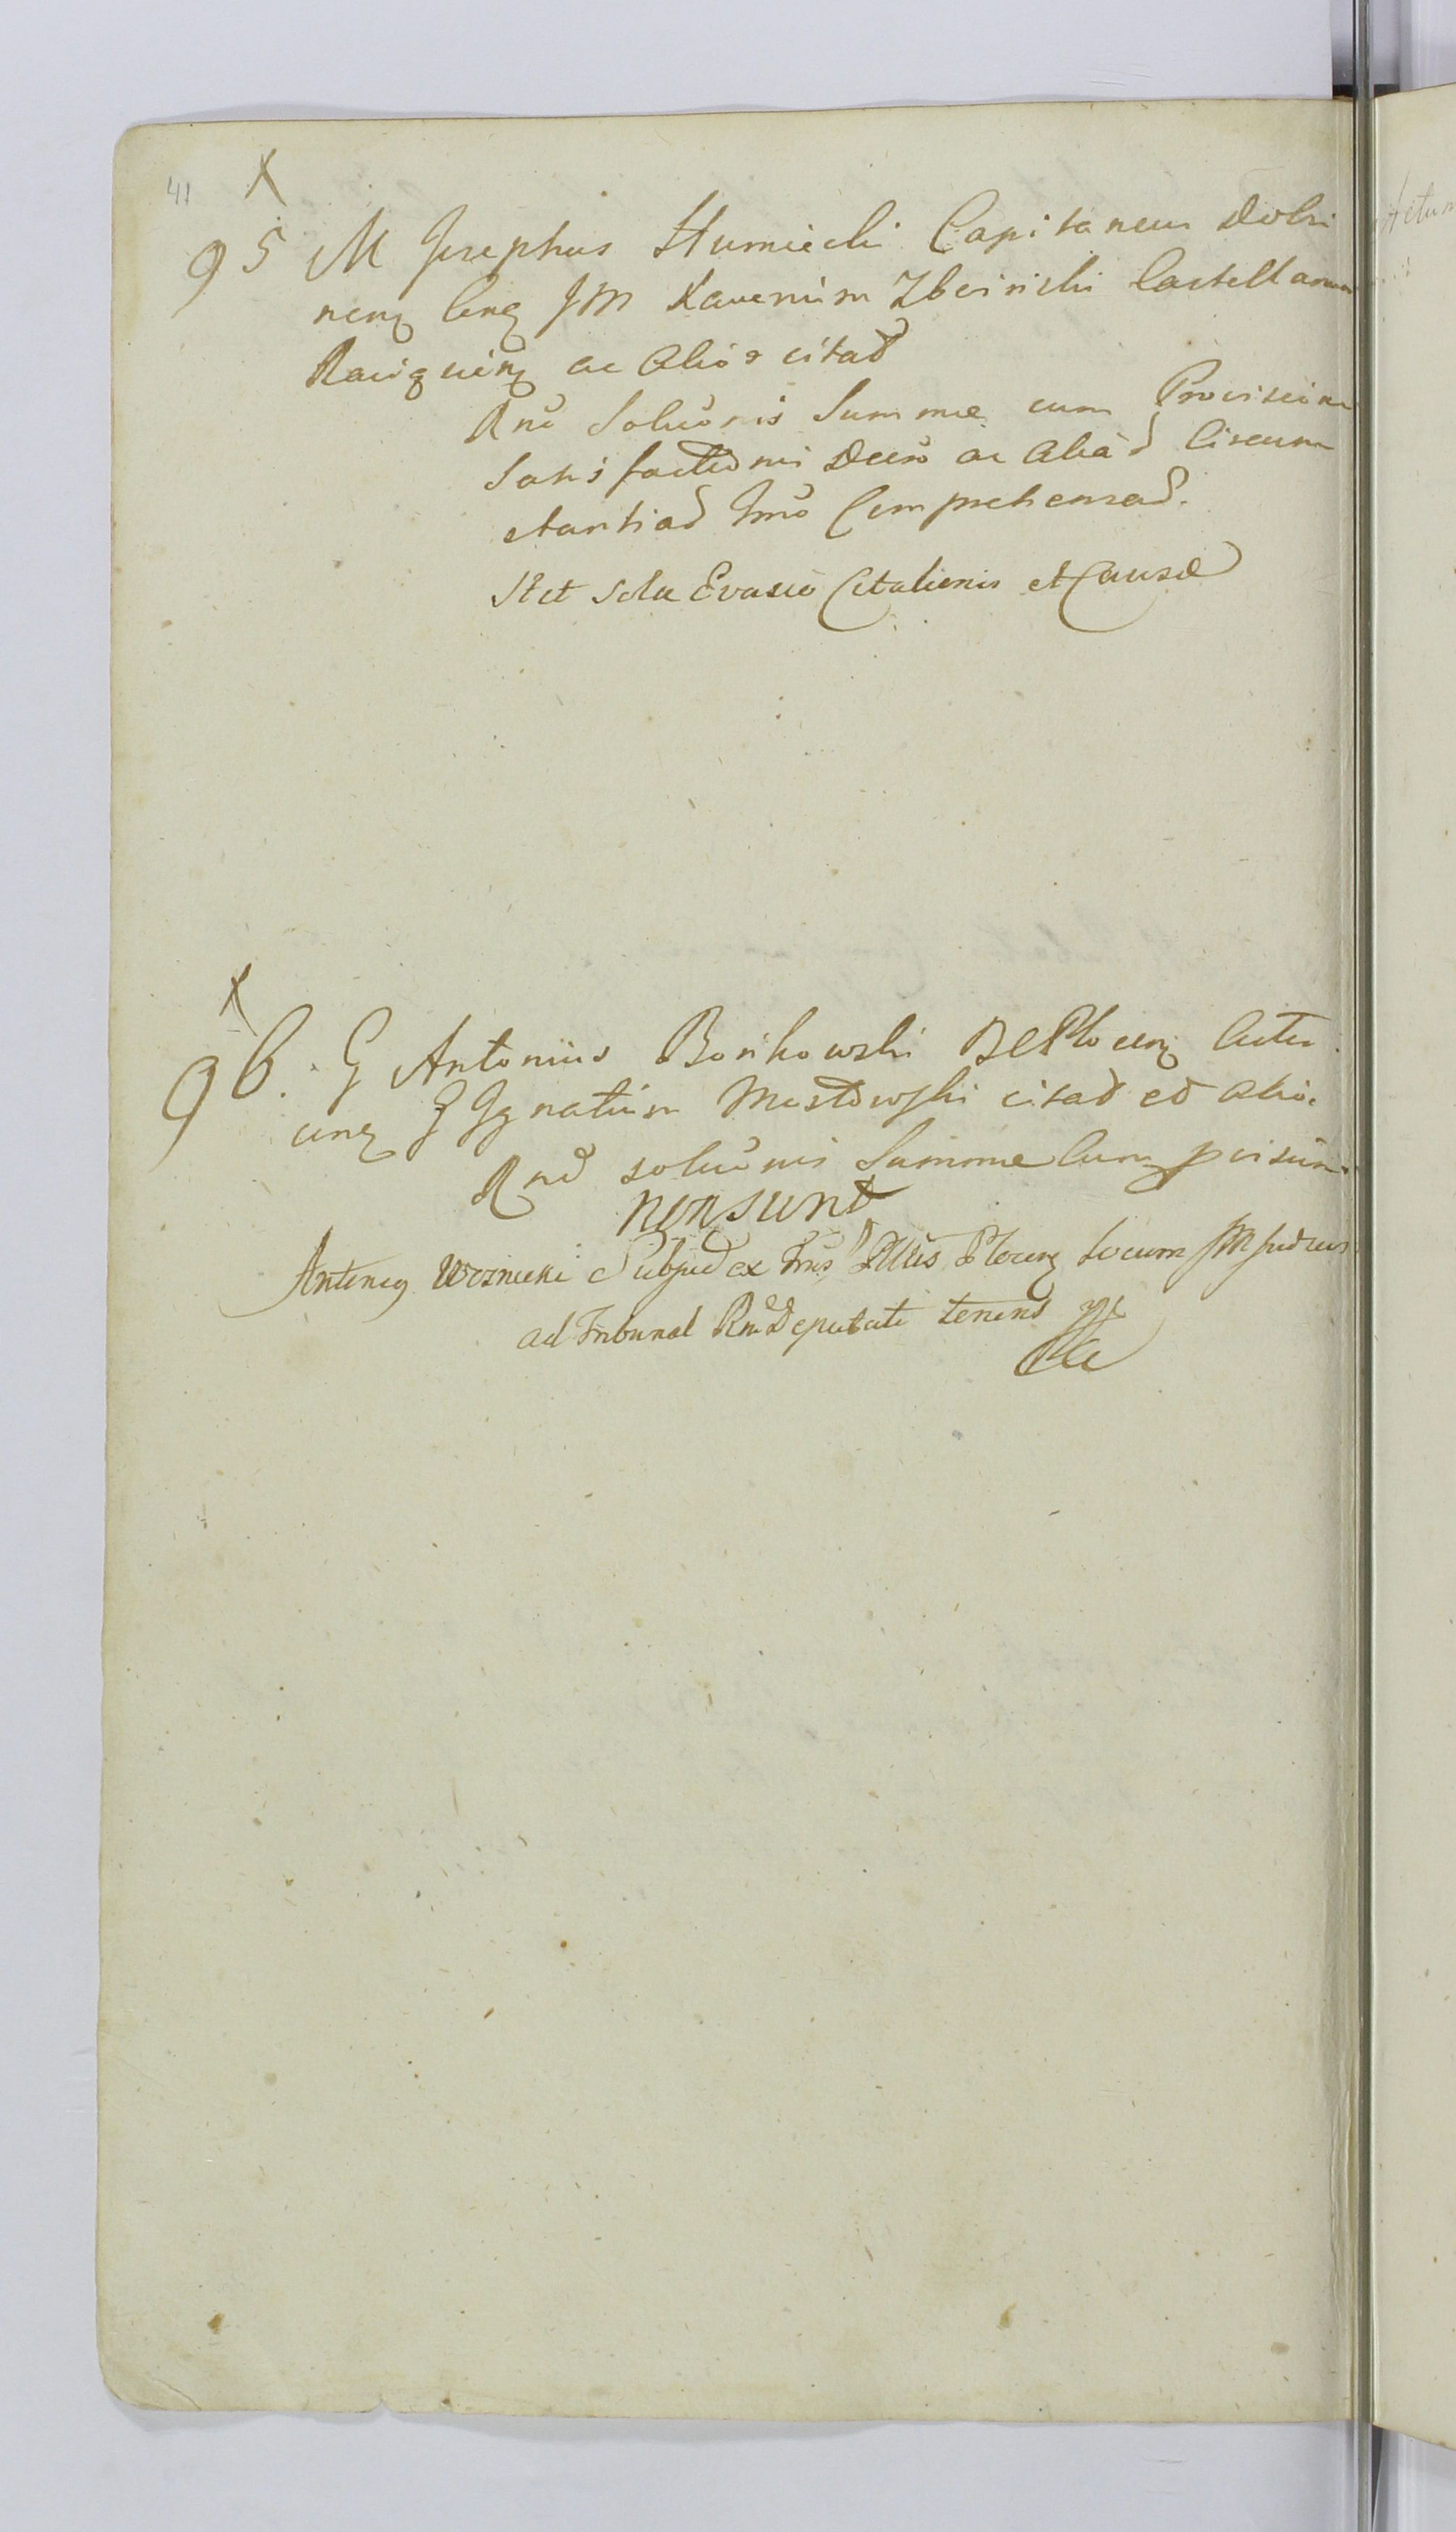 41 X
95 M Josephus Humiecki Capitaneus Dobri
nen Cong JM Xaverium Zboinski Castellanum
Raciąznen ac Alios citat
Rnõ Soluõnis Summae cum Provisione
Satisfactionis Decreto ac Aliad Circum
stantiad Tmõ Comprehensad.
Stet Sola Evasio Citationis et Causae
X
96. G Antonius Bońkowski BG Plocen Actor
cong G Ignatium Mostowski citad ed Alio.
Rnõ soluõnis Summae Cum pvisione
non sunt
Antonius Woznicki Subjudex Trris Pllttis Plocen Locum JM Judicis
ad Tribunal Rni Deputati tenens mp